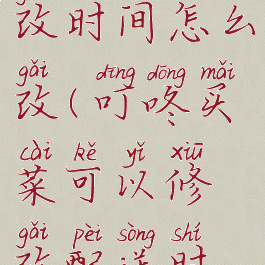 改时间怎么
gǎi dīng dōng mǎi
改(叮咚买
cài kě yǐ xiū
菜可以修
gǎi pèi sòng shí
改配送时